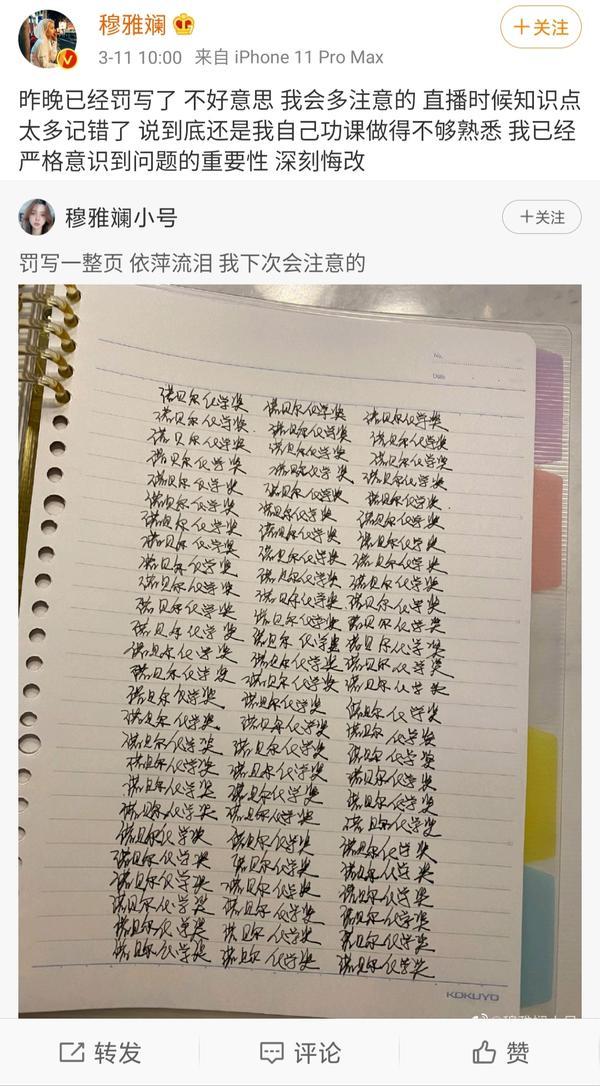 穆雅斓
3-11 10:00 来自 iPhone 11 Pro Max
＋关注
昨晚已经罚写了 不好意思 我会多注意的 直播时候知识点
太多记错了 说到底还是我自己功课做得不够熟悉 我已经
严格意识到问题的重要性 深刻悔改
穆雅斓小号
＋关注
罚写一整页 依萍流泪 我下次会注意的
No.
Date
诺贝尔化学奖 诺贝尔化学奖 诺贝尔化学奖
诺贝尔化学奖 诺贝尔化学奖 诺贝尔化学奖
诺贝尔化学奖 诺贝尔化学奖 诺贝尔化学奖
诺贝尔化学奖 诺贝尔化学奖 诺贝尔化学奖
诺贝尔化学奖 诺贝尔化学奖 诺贝尔化学奖
诺贝尔化学奖 诺贝尔化学奖 诺贝尔化学奖
诺贝尔化学奖 诺贝尔化学奖 诺贝尔化学奖
诺贝尔化学奖 诺贝尔化学奖 诺贝尔化学奖
诺贝尔化学奖 诺贝尔化学奖 诺贝尔化学奖
诺贝尔化学奖 诺贝尔化学奖 诺贝尔化学奖
诺贝尔化学奖 诺贝尔化学奖 诺贝尔化学奖
诺贝尔化学奖 诺贝尔化学奖 诺贝尔化学奖
诺贝尔化学奖 诺贝尔化学奖 诺贝尔化学奖
诺贝尔化学奖 诺贝尔化学奖 诺贝尔化学奖
诺贝尔化学奖 诺贝尔化学奖 诺贝尔化学奖
诺贝尔化学奖 诺贝尔化学奖 诺贝尔化学奖
诺贝尔化学奖 诺贝尔化学奖 诺贝尔化学奖
诺贝尔化学奖 诺贝尔化学奖 诺贝尔化学奖
诺贝尔化学奖 诺贝尔化学奖 诺贝尔化学奖
诺贝尔化学奖 诺贝尔化学奖 诺贝尔化学奖
诺贝尔化学奖 诺贝尔化学奖 诺贝尔化学奖
诺贝尔化学奖 诺贝尔化学奖 诺贝尔化学奖
诺贝尔化学奖 诺贝尔化学奖 诺贝尔化学奖
诺贝尔化学奖 诺贝尔化学奖 诺贝尔化学奖
诺贝尔化学奖 诺贝尔化学奖 诺贝尔化学奖
诺贝尔化学奖 诺贝尔化学奖 诺贝尔化学奖
KOKUYO
转发 评论 赞